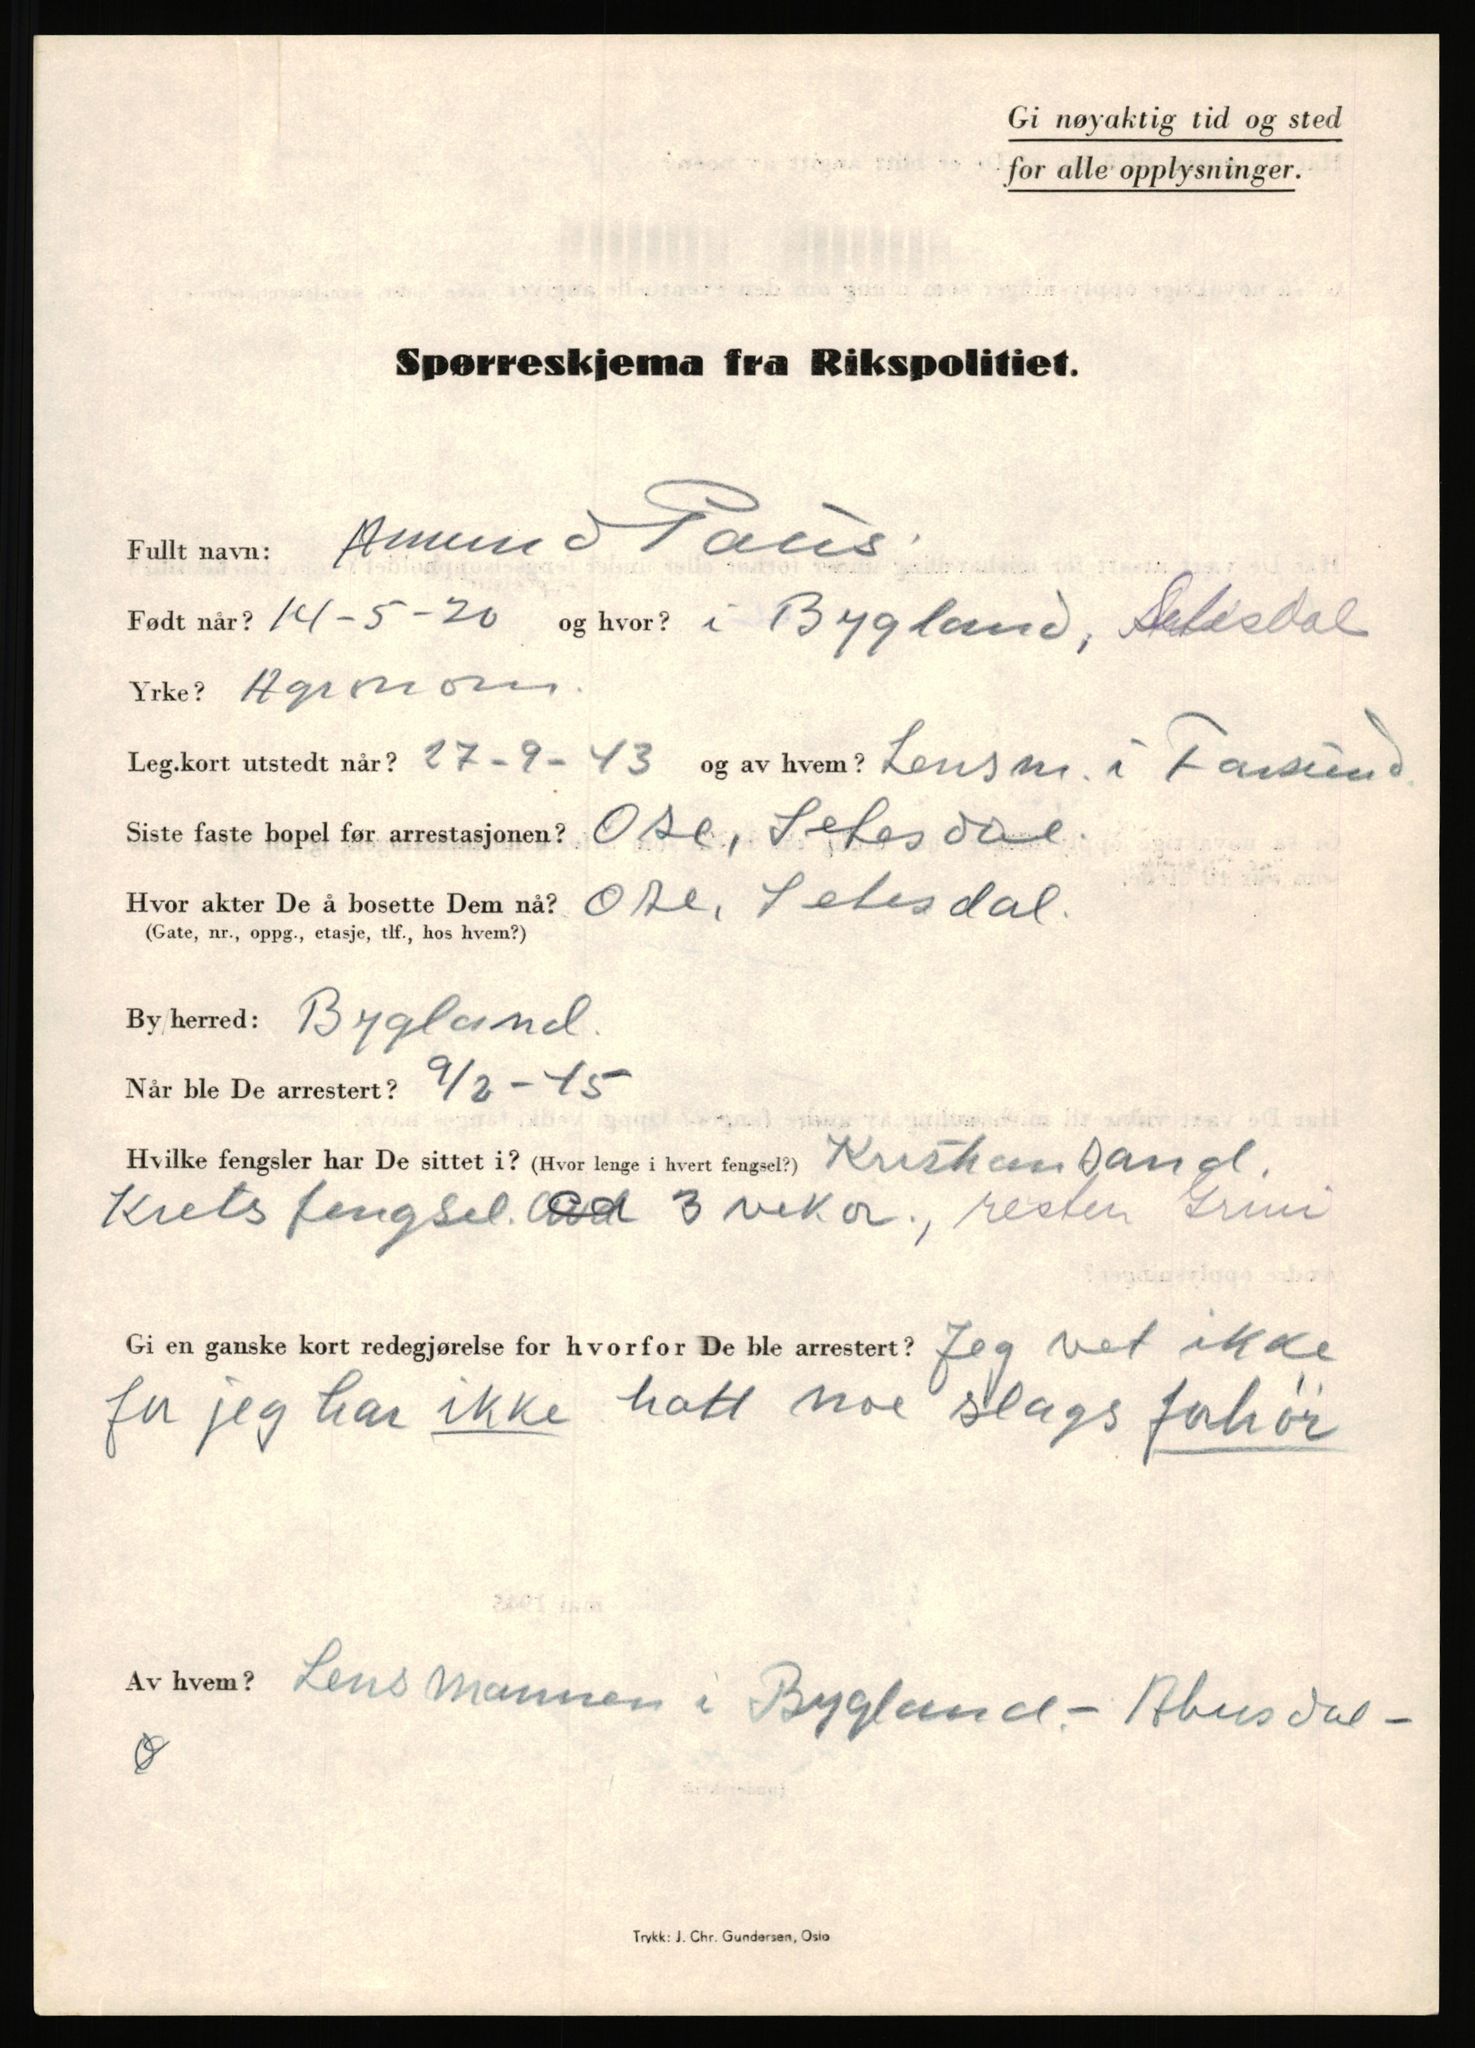 Gi nøyaktig tid og sted
for alle opplysninger.
Spørreskjema fra Rikspolitiet.
Fullt navn: Amund Paus.
Født når? 14-5-20 og hvor? i Bygland, Setesdal
Yrke? Agronom.
Leg.kort utstedt når? 27-9-43 og av hvem? Lensm. i Farsund.
Siste faste bopel før arrestasjonen? Ose, Setesdal.
Hvor akter De å bosette Dem nå? Ose, Setesdal.
(Gate, nr., oppg., etasje, tlf., hos hvem?)
By/herred: Bygland.
Når ble De arrestert? 9/2-45
Hvilke fengsler har De sittet i? (Hvor lenge i hvert fengsel?) Kristiansand.
Krets fengsel. 3 veker., resten Grini
Gi en ganske kort redegjørelse for hvorfor De ble arrestert? Jeg vet ikke
for jeg har ikke hatt noe slags forhör
Av hvem? Lensmannen i Bygland.-
Trykk: J. Chr. Gundersen, Oslo